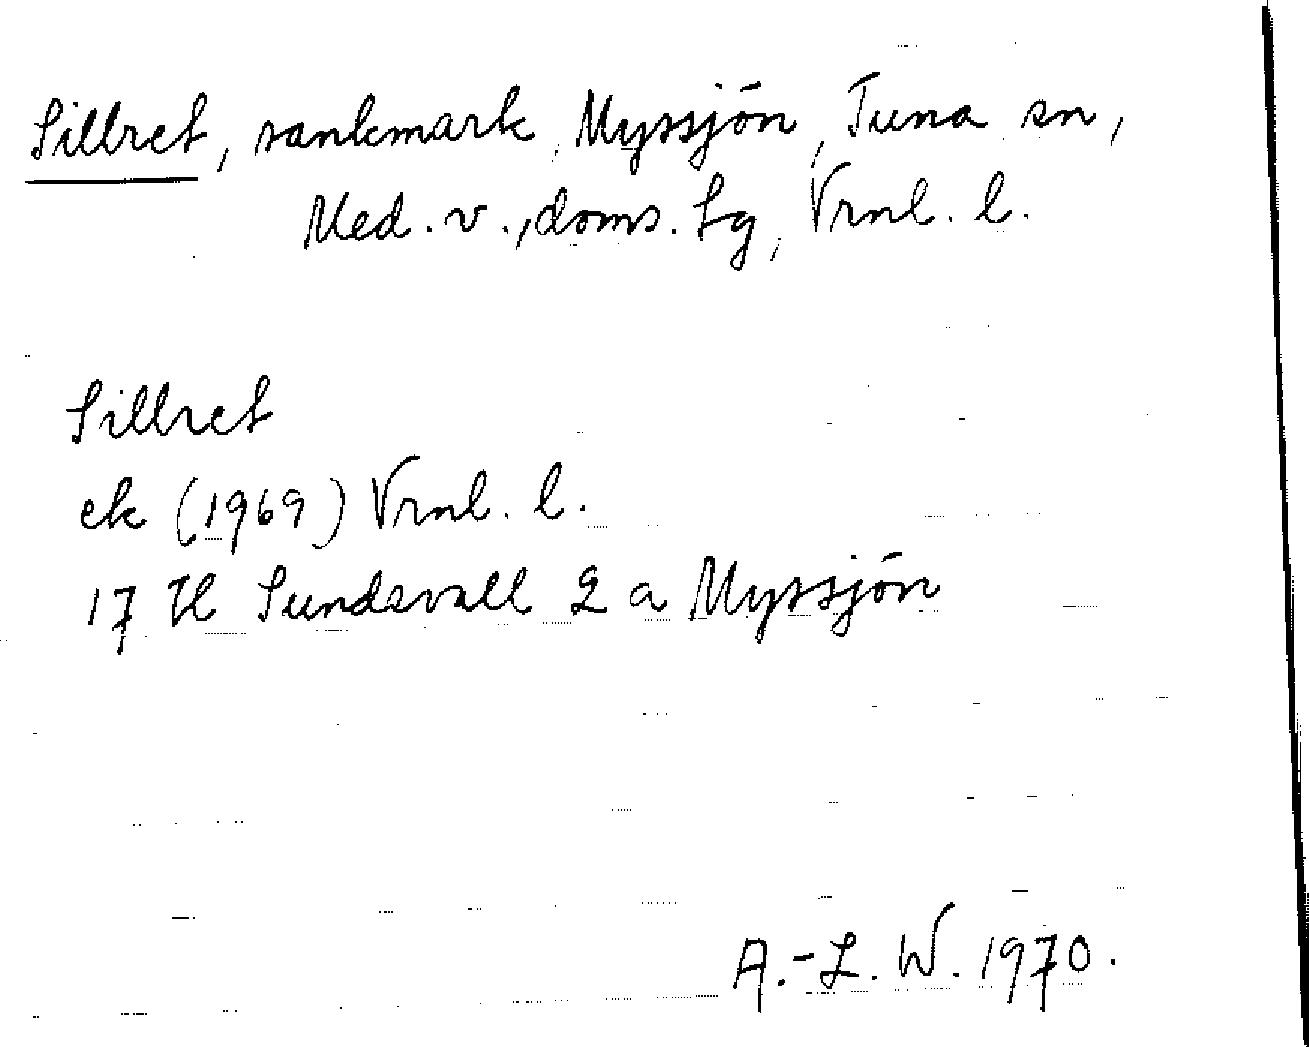 Sillret, sankmark, Myssjön, Tuna sn,
Med. v., doms. hg, Vrnl. l.
Sillret
ek (1969) Vrnl. l.
17 H Sundsvall 2 a Myssjön
A.-L. W. 1970.